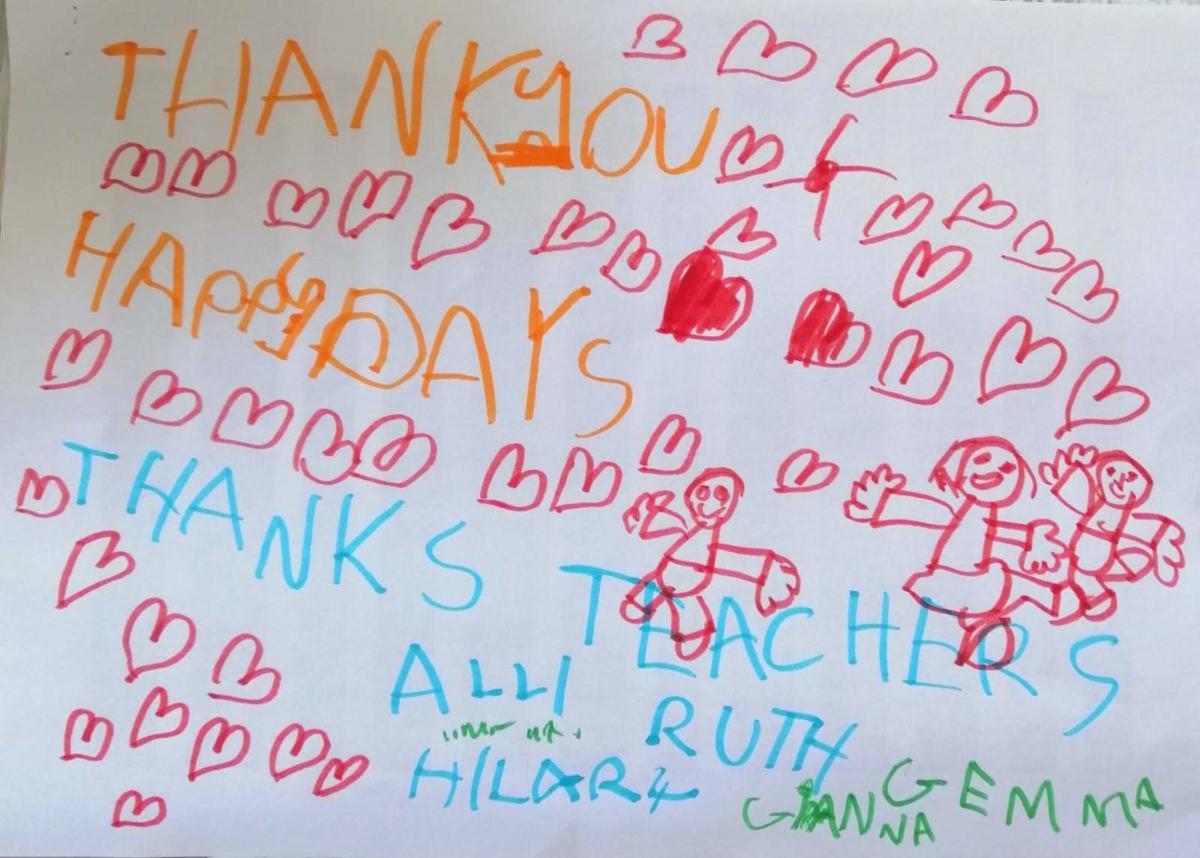 THANK YOU
HAppy DAYS
THANKS TEACHERS
ALLI RUTH
HILARY
GIANNA GEMMA